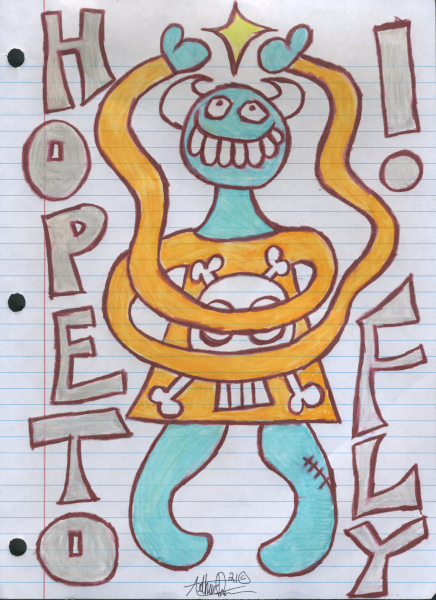 HOPE TO
! FLY